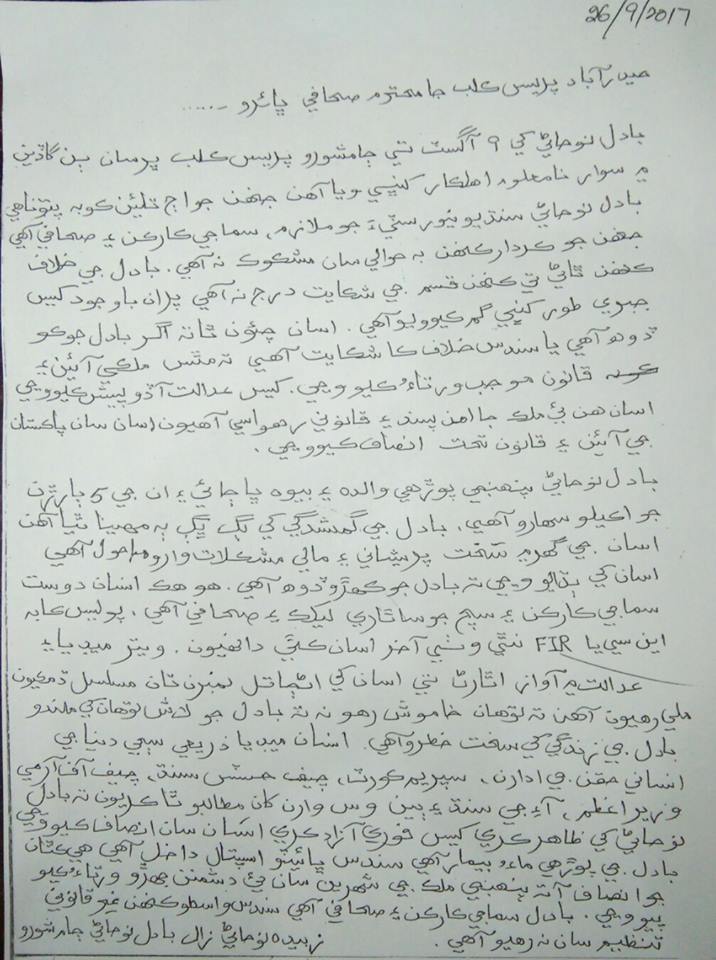 26/9/2017
حيدرآباد پريس ڪلب جا محترم صحافي ڀائرو ......
بادل نوحاڻي کي 9 آگسٽ تي ڄامشورو پريس ڪلب ڀرسان ٻن گاڏين
۾ سوار نامعلوم اهلڪار کڻي ويا آهن جنهن جو اڄ تائين ڪو به پتو ناهي
بادل نوحاڻي سنڌ يونيورسٽيءَ جو ملازم، سماجي ڪارڪن ۽ صحافي آهي
جنهن جو ڪردار ڪنهن به حوالي سان مشڪوڪ نه آهي. بادل جي خلاف
ڪنهن ٿاڻي تي ڪنهن قسم جي شڪايت درج نه آهي پر ان باوجود کيس
جبري طور کڻي گم ڪيو ويو آهي. اسان چئون ٿا ته اگر بادل جو ڪو
ڏوهه آهي يا سندس خلاف ڪا شڪايت آهي ته مٿس ملڪي آئين ۽
قانون موجب ورتاءُ ڪيو وڃي. کيس عدالت آڏو پيش ڪيو وڃي
اسان هن ئي ملڪ جا امن پسند ۽ قانوني رهواسي آهيون اسان سان پاڪستان
جي آئين ۽ قانون تحت انصاف ڪيو وڃي.
بادل نوحاڻي پنهنجي پوڙهي والده ۽ بيوه ڀاڄائي ۽ ان جي 5 ٻارڙن
جو اڪيلو سهارو آهي، بادل جي گمشدگي کي لڳ ڀڳ ٻه مهينا ٿيا آهن
اسان جي گهر ۾ سخت پريشاني ۽ مالي مشڪلات وارو ماحول آهي
اسان کي ٻڌايو وڃي ته بادل جو ڪهڙو ڏوهه آهي. هو هڪ انسان دوست
سماجي ڪارڪن ۽ سچ جو ساٿاري ليکڪ ۽ صحافي آهي، پوليس ڪا به
اين سي يا FIR نٿي وٺي آخر اسان ڪٿي دانهيون. ويتر ميڊيا ۽
عدالت ۾ آواز اٿارڻ تي اسان کي اڻڄاتل نمبرن تان مسلسل ڌمڪيون
ملي رهيون آهن ته توهان خاموش رهو نه ته بادل جو لاش توهان کي ملندو
بادل جي زندگي کي سخت خطرو آهي. اسان ميڊيا ذريعي سڄي دنيا جي
انساني حقن جي ادارن، سپريم ڪورٽ، چيف جسٽس سنڌ، چيف آف آرمي
وزير اعظم، آءِ جي سنڌ ۽ ٻين وس وارن کان مطالبو ٿا ڪريون ته بادل
نوحاڻي کي ظاهر ڪري کيس فوري آزاد ڪري اسان سان انصاف ڪيو وڃي
بادل جي پوڙهي ماءُ بيمار آهي سندس ڀائيٽو اسپتال داخل آهي هي ڪٿان
جو انصاف آ ته پنهنجي ملڪ جي شهرين سان ئي دشمنن جهڙو ورتاءُ ڪيو
پيو وڃي. بادل سماجي ڪارڪن ۽ صحافي آهي سندس واسطو ڪنهن غير قانوني
تنظيم سان نه رهيو آهي. زبيده نوحاڻي زال بادل نوحاڻي ڄامشورو